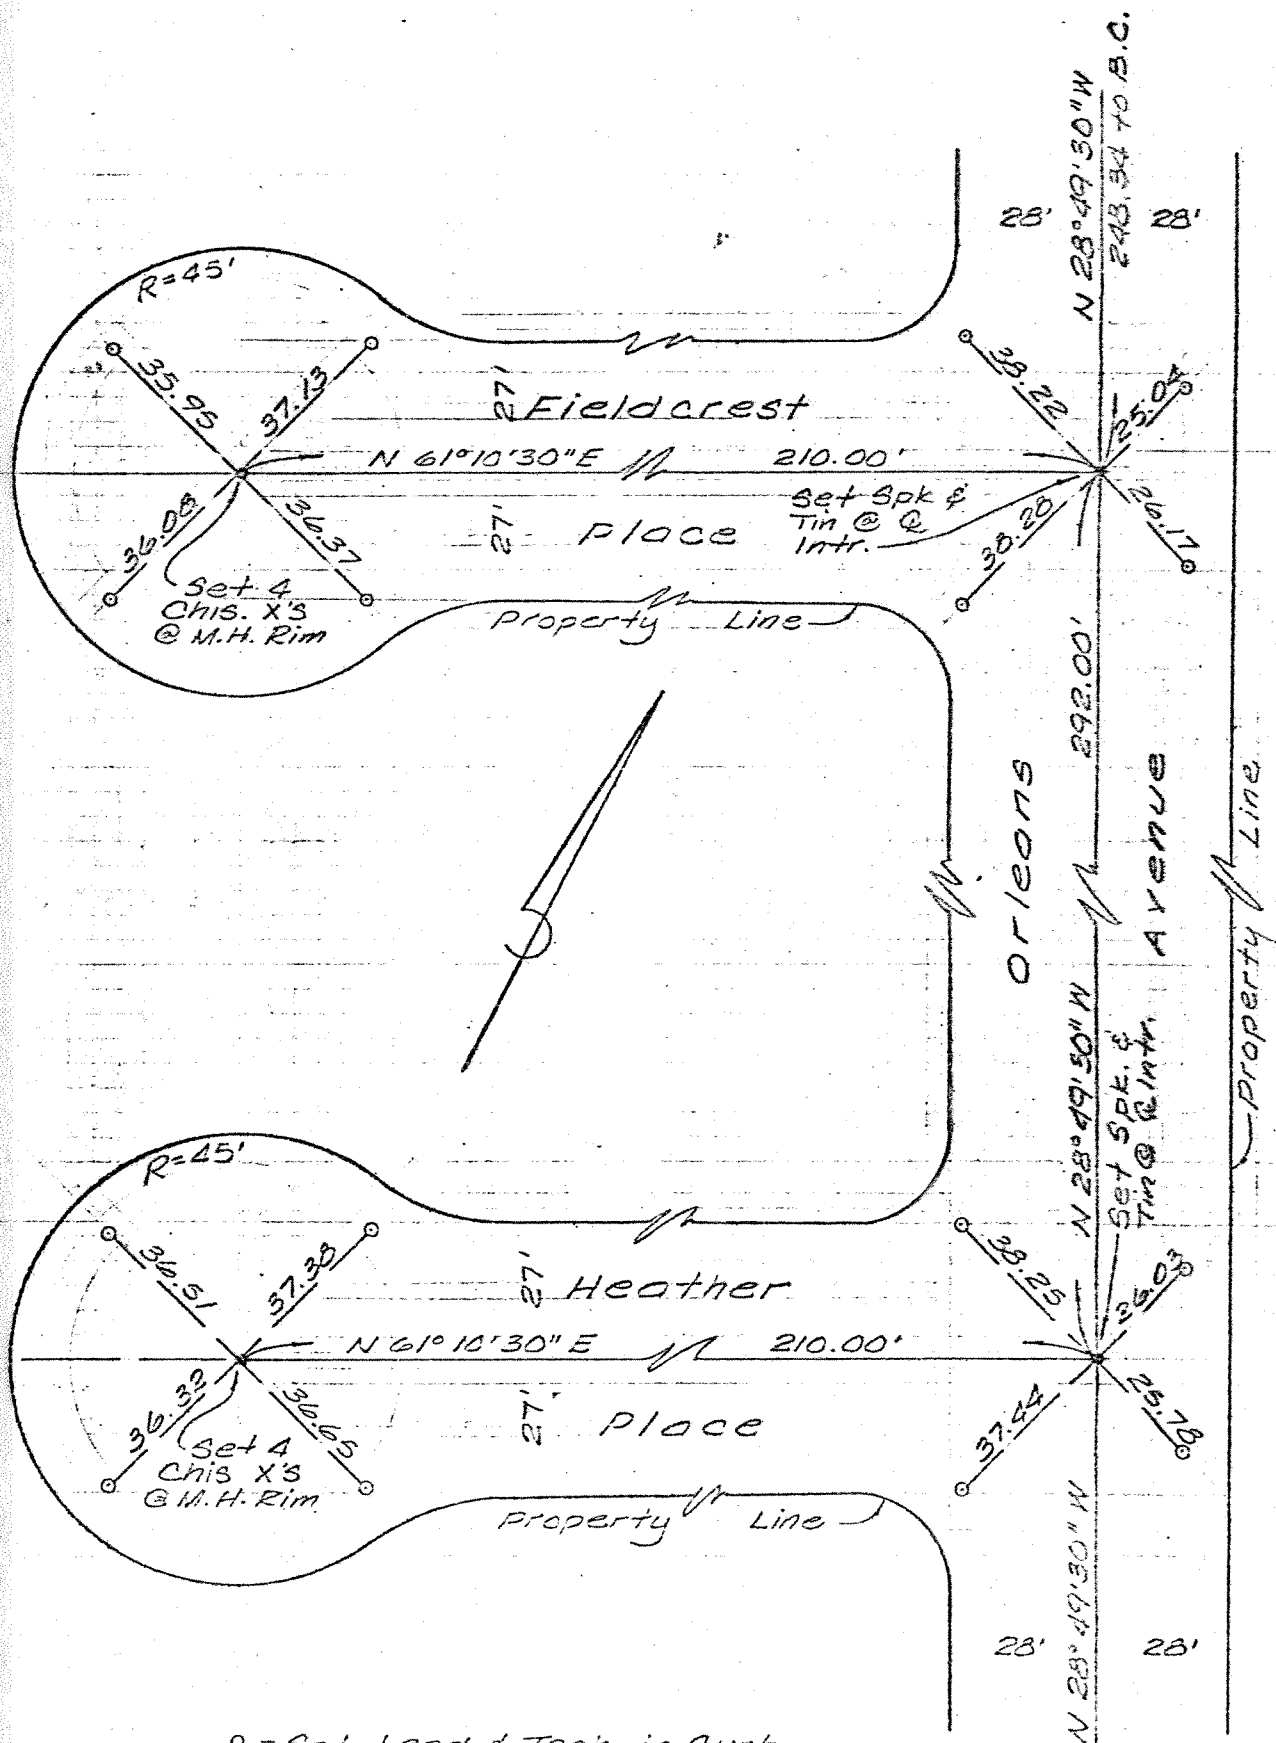 N 28°49'30"W
243.34 to B.C.
28'
28'
R=45'
35.95
37.13
27'
Fieldcrest
38.22
25.04
N 61°10'30"E
210.00'
36.08
36.37
27'
Place
Set Spk &
Tin @ ℄
Intr.
38.28
26.17
Set 4
Chis. X's
@ M.H. Rim
Property Line
292.00'
Orleans
Avenue
Property Line
N 28°49'30"W
Set Spk. &
Tin @ ℄ Intr.
R=45'
36.51
37.38
27'
Heather
38.25
26.03
N 61°10'30"E
210.00'
36.32
36.65
27'
Place
37.44
25.78
Set 4
Chis X's
@ M.H. Rim
Property Line
N 28°49'30"W
28'
28'